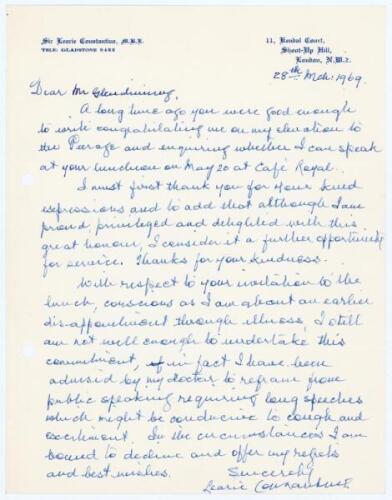 Sir Learie Constantine, M.B.E.
TELE: GLADSTONE 9482
11, Kendal Court,
Shoot-Up Hill,
London, N.W.2.
28th Mch: 1969.
Dear Mr Glendinning,
A long time ago you were good enough
to write congratulating me on my elevation to
the Peerage and enquiring whether I can speak
at your luncheon on May 20 at Café Royal.
I must first thank you for your kind
expressions and to add that although I am
proud, privileged and delighted with this
great honour, I consider it a further opportunity
for service. Thanks for your kindness.
With respect to your invitation to the
lunch, conscious as I am about an earlier
dis-appointment through illness, I still
am not well enough to undertake this
commitment, in fact I have been
advised by my doctor to refrain from
public speaking requiring long speeches
which might be conducive to cough and
excitement. In the circumstances I am
bound to decline and offer my regrets
and best wishes.
Sincerely
Learie Constantine